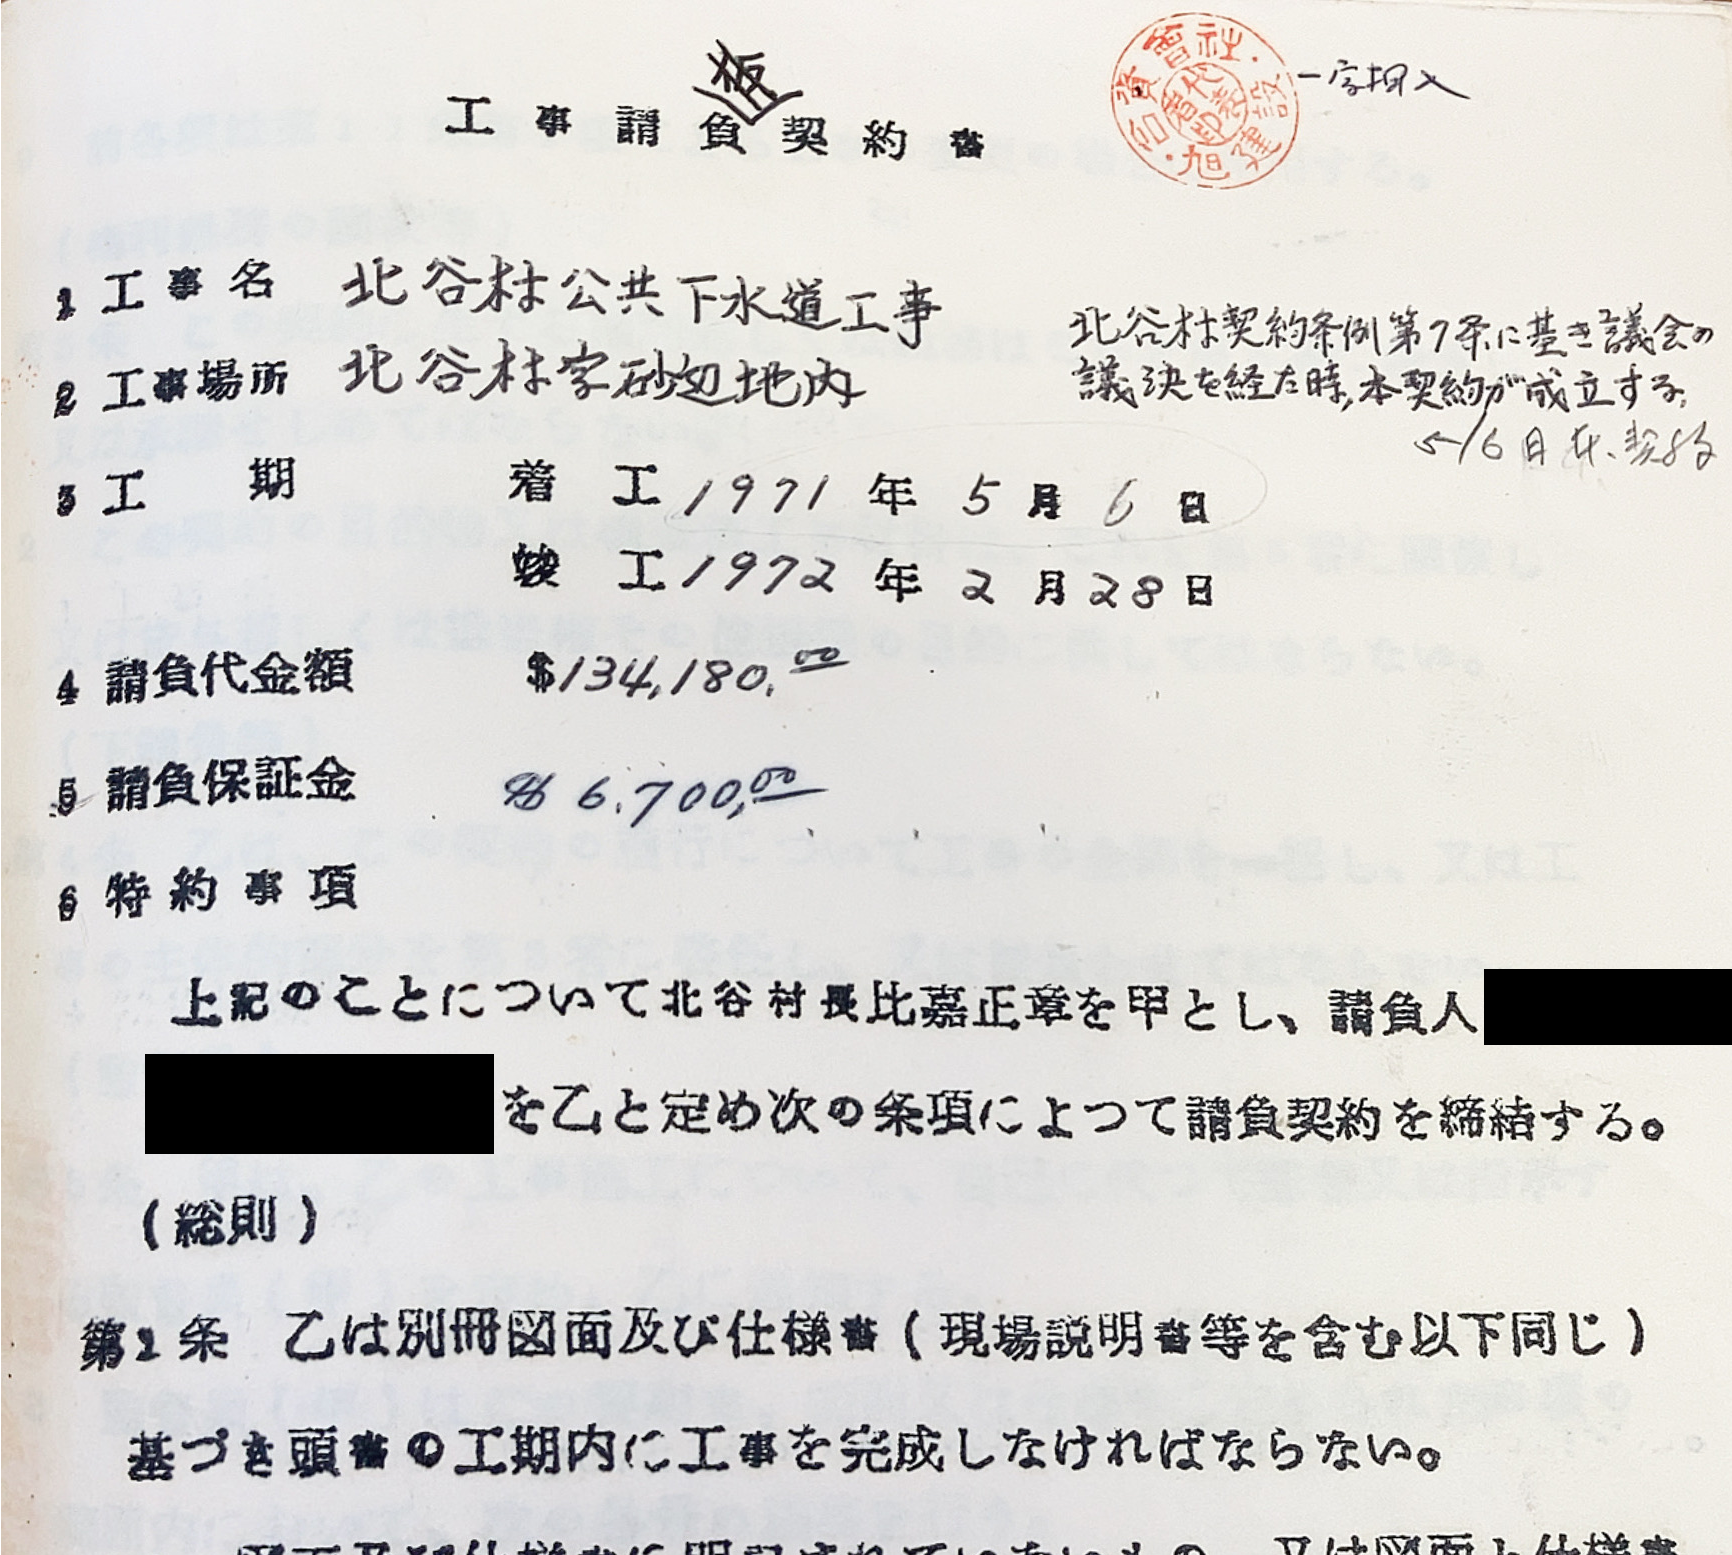 仮
工事請負契約書
合資會社・旭建設・
代表者印
一字挿入
1 工事名 北谷村公共下水道工事
2 工事場所 北谷村字砂辺地内
北谷村契約条例第7条に基き議会の
議決を経た時,本契約が成立する,
5/6日本契約
3 工期 着工 1971年5月6日
竣工 1972年2月28日
4 請負代金額 $134,180.00
5 請負保証金 $6,700.00
6 特約事項
上記のことについて北谷村長比嘉正章を甲とし、請負人
を乙と定め次の条項によつて請負契約を締結する。
(総則)
第1条 乙は別冊図面及び仕様書(現場説明書等を含む以下同じ)
基づき頭書の工期内に工事を完成しなければならない。
図面及び仕様書に明記されていないもの、又は図面と仕様書